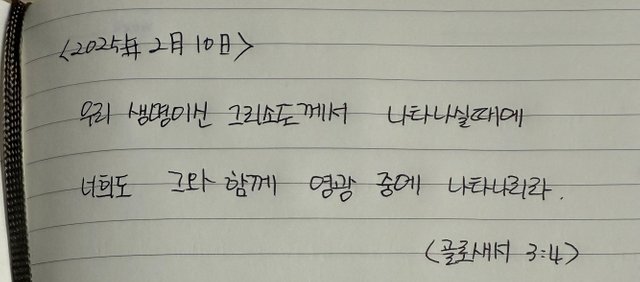 <2025年 2月 10日>
우리 생명이신 그리스도께서 나타나실때에
너희도 그와 함께 영광 중에 나타나리라.
(골로새서 3:4)